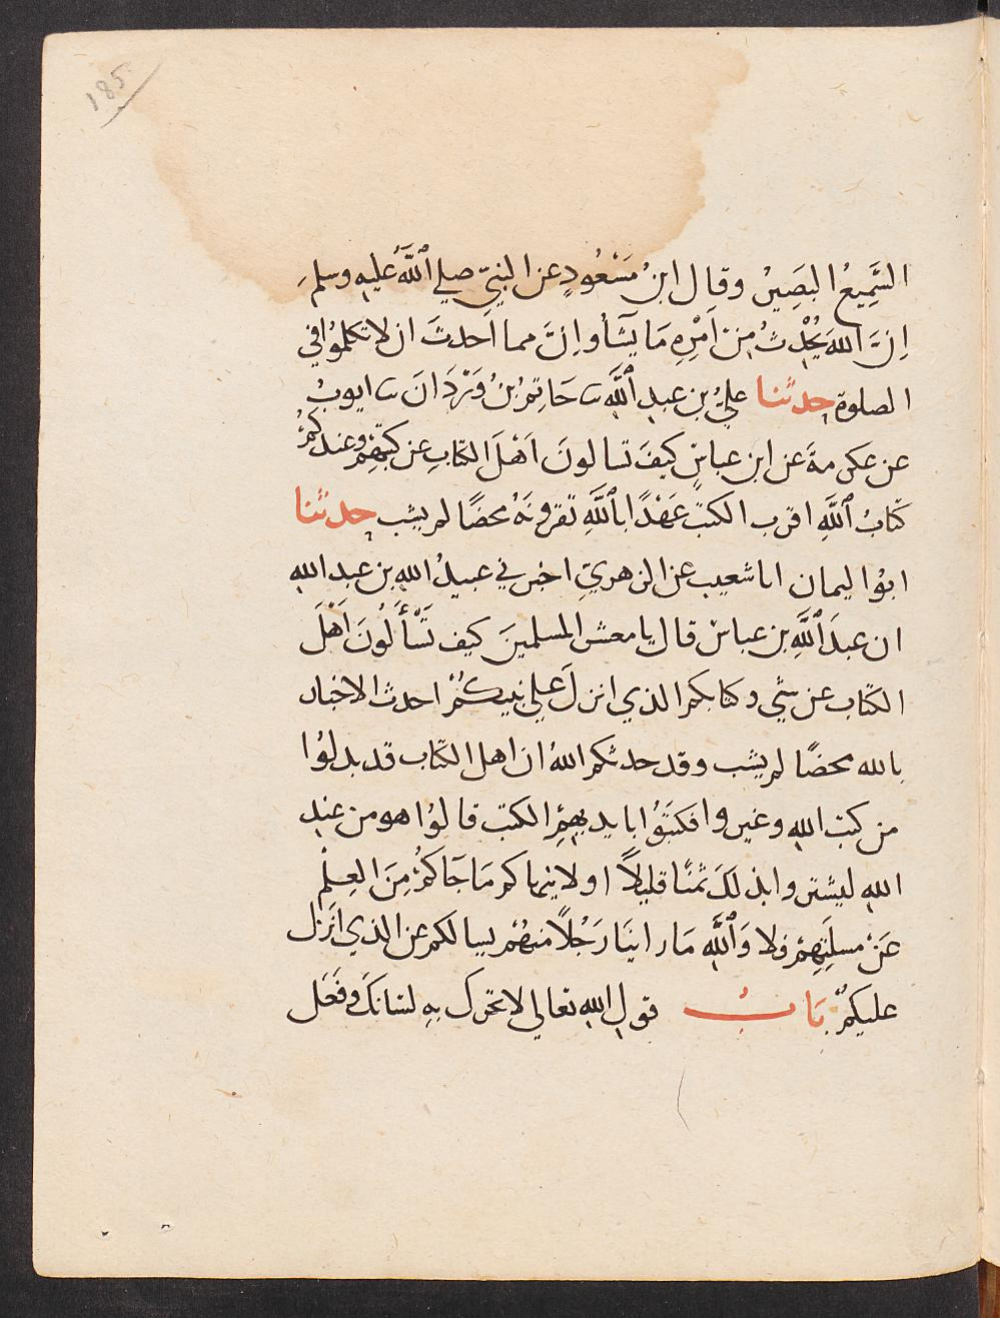 185
السَّمِيعُ البَصِيرُ وقال ابنُ مَسْعُودٍ عن النبيّ صلي اللَّهُ عليه وسلم
اِنَّ اللهَ يُحْدِثُ مِنْ اَمْرِهِ مَا يَشَآُ واِنَّ مما اَحدثَ ان لا تكلمُوا في
الصلوة حدثنا عليُّ بن عبد اللَّهِ ثنا حَاتِمُ بْنُ وَرْدَانَ ثنا ايوبُ
عن عكرمةَ عن ابن عباسٍ كيفَ تسالونَ اَهْلَ الكتابِ عن كتبِهِمْ وعندكُمْ
كتَابُ اللَّهِ اقرب الكتبِ عَهْدًا باللَّهِ تقرونَهُ محضًا لم يشب حدثنا
ابوُا ليمان انا شعيب عن الزهريّ اخبرني عبيدُ اللهِ بن عبد الله
ان عبدَ اللَّهِ بن عباسٍ قال يا معشر المسلمينَ كيف تَسْأَلُونَ اَهْلَ
الكتاب عن شيء وكتابكم الذي انزلَ علي نبيكُمْ احدث الاخبار
بالله محضًا لم يشب وقد حدثكم اللهُ ان اهل الكتاب قد بدلوُا
من كتب اللهِ وغيروا فكتبَوُا بايديهِمُ الكتب قالوُا هو من عند
اللهِ ليشتروا بذلكَ ثمنًا قليلاً اولا ينهاكم مَا جَآكُمْ مِنَ العِلْمِ
عَنْ مسلَتِهِمْ فلا وَاللَّهِ مَا راينَا رَجُلاً منهُمْ يسالكم عن الذي انزل
عليكُمْ بَابُ قول اللهِ تعالي لا تحرك بهِ لسَانكَ وفَعَل